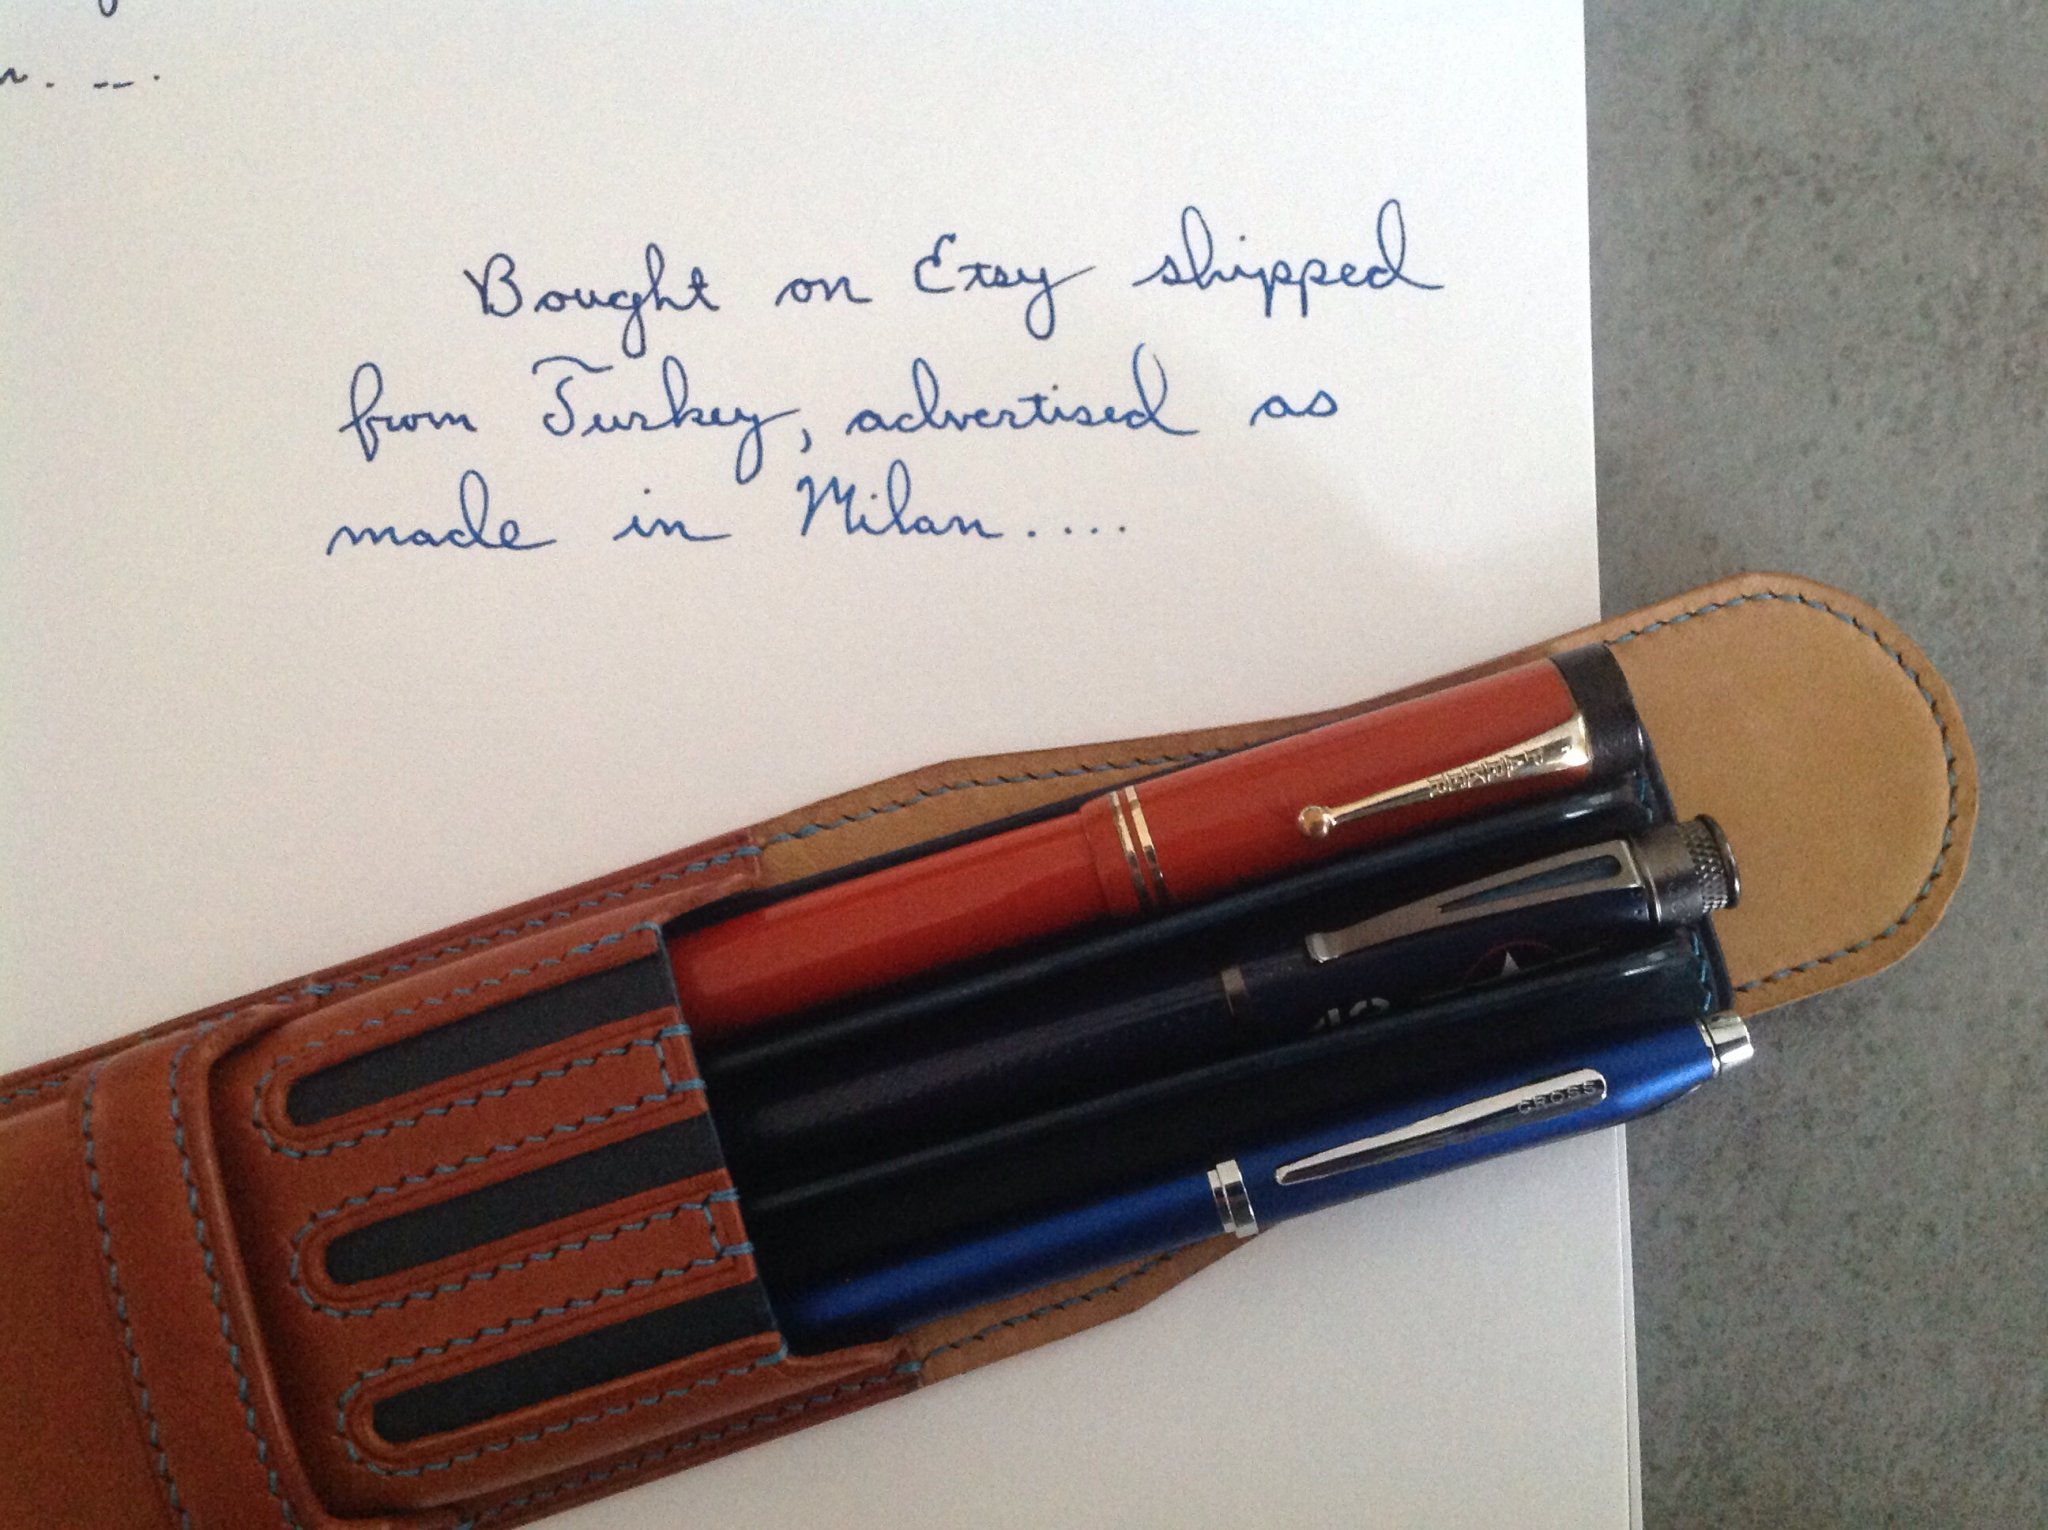 n. --.
Bought on Etsy shipped
from Turkey, advertised as
made in Milan....
PARKER
CROSS